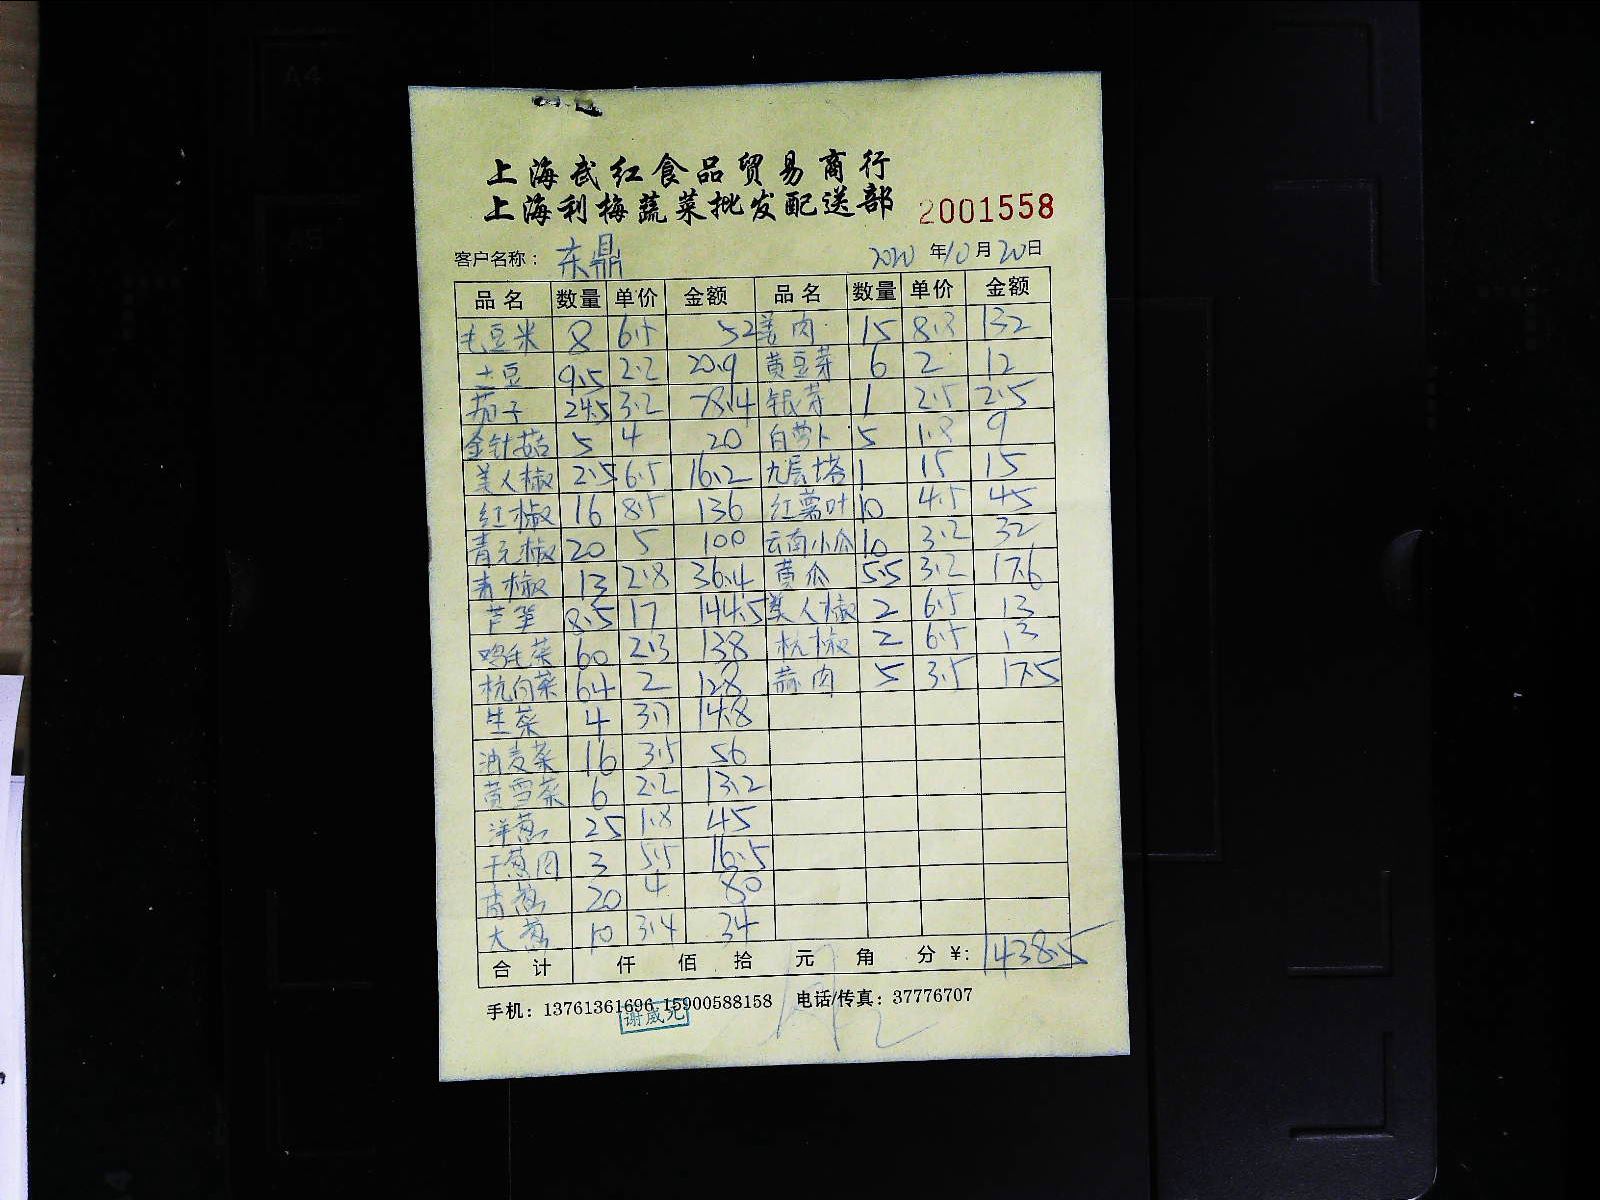 上海武红食品贸易商行
上海利梅蔬菜批发配送部 2001558
客户名称： 东鼎 2020 年 10 月 20 日
品名 数量 单价 金额 品名 数量 单价 金额
毛豆米 8 6.5 52 姜肉 15 8.8 132
土豆 9.5 2.2 20.9 黄豆芽 6 2 12
茄子 24.5 3.2 78.4 银芽 1 2.5 2.5
金针菇 5 4 20 白萝卜 5 1.8 9
美人椒 2.5 6.5 16.2 九层塔 1 15 15
红椒 16 8.5 136 红薯叶 10 4.5 45
青元椒 20 5 100 云南小瓜 10 3.2 32
青椒 13 2.8 36.4 黄瓜 5.5 3.2 17.6
芦笋 8.5 17 144.5 美人椒 2 6.5 13
鸡毛菜 60 2.3 138 杭椒 2 6.5 13
杭白菜 64 2 128 蒜肉 5 3.5 17.5
生菜 4 3.7 14.8
油麦菜 16 3.5 56
黄雪菜 6 2.2 13.2
洋葱 25 1.8 45
干葱肉 3 5.5 16.5
香葱 20 4 80
大葱 10 3.4 34
合计 仟 佰 拾 元 角 分 ¥: 1438.5
手机：13761361696 15900588158 电话/传真：37776707
谢威克
A4
A5